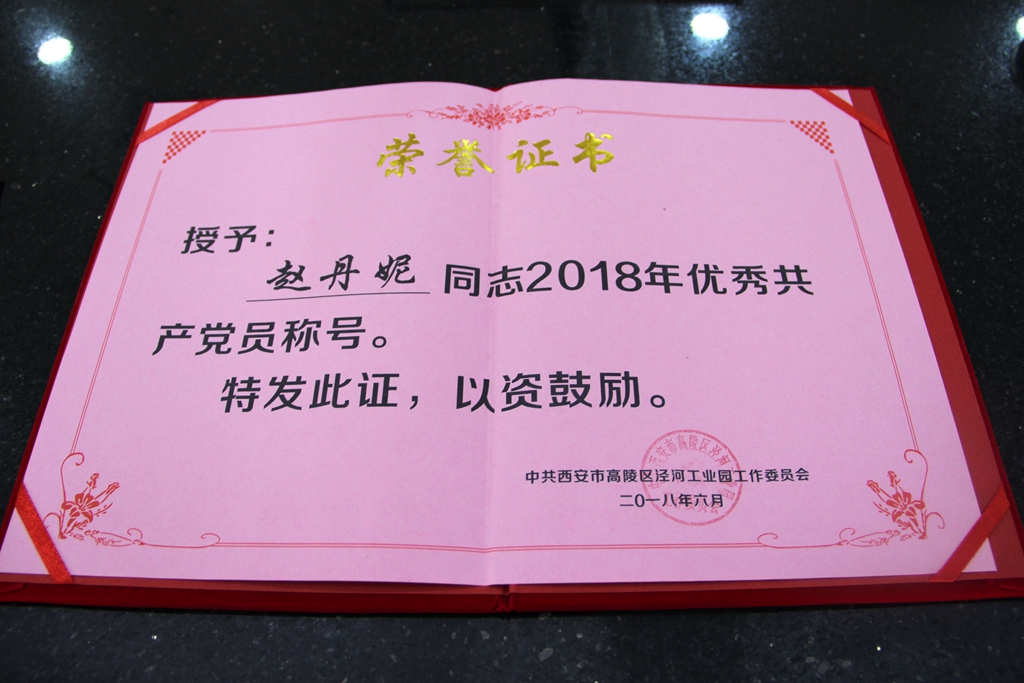 荣誉证书
授予：
赵丹妮 同志2018年优秀共
产党员称号。
特发此证，以资鼓励。
中共西安市高陵区泾河工业园工作委员会
二〇一八年六月